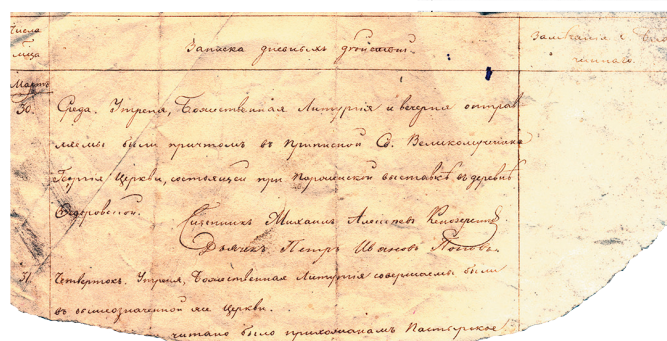 Числа
Записка дневныхъ действий.
Замечания
Мартъ
30. Среда. Утреня, Божественная Литургія и вечерня отправ
ляемы были причтомъ въ приписной Св. Великомученика
Георгія Церкви, состоящей при выставкѣ, въ деревнѣ
Федоровской.
Священникъ Михаилъ Алексѣевъ
Дьячекъ Петръ Ивановъ Поповъ
31. Четвертокъ. Утреня, Божественная Литургія совершаемы были
въ вышеозначенной же Церкви.
читано было прихожанамъ Пастырское